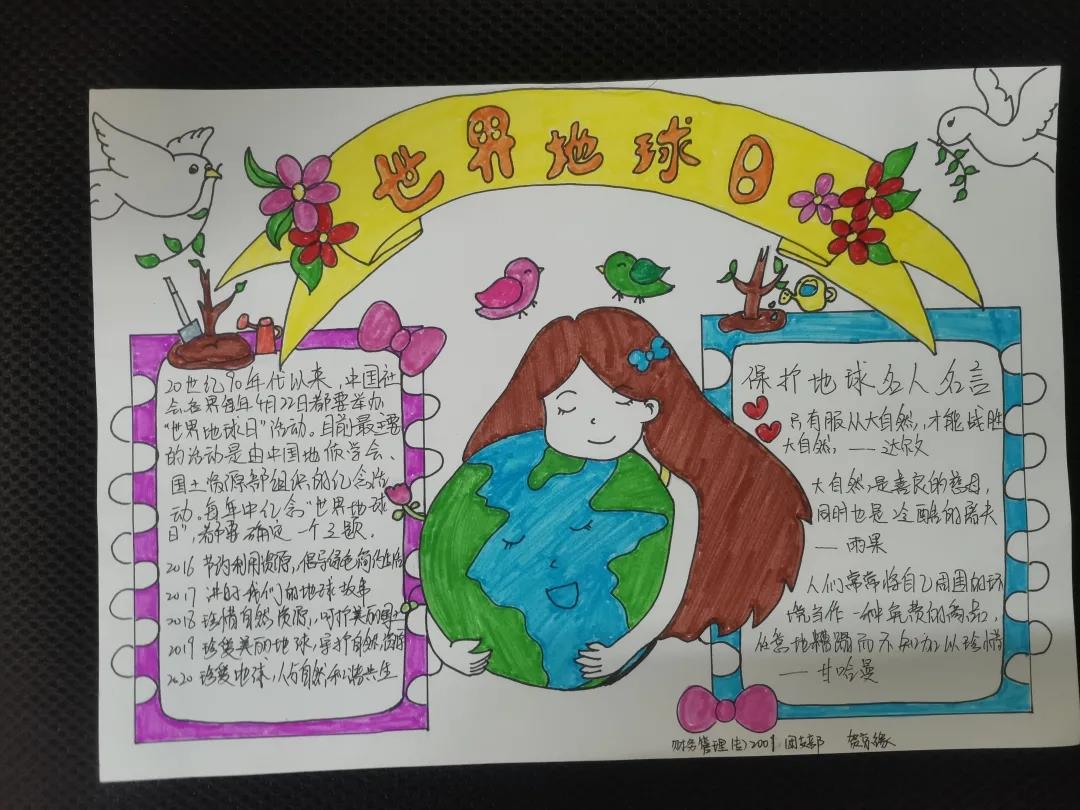 世界地球日
20世纪90年代以来，中国社
会各界每年4月22日都要举办
“世界地球日”活动。目前最主要
的活动是由中国地质学会、
国土资源部组织的纪念活
动。每年中纪念“世界地球
日”，都要确定一个主题.
2016 节约利用资源，倡导绿色简约生活
2017 讲好我们的地球故事
2018 珍惜自然资源，呵护美丽国土
2019 珍爱美丽地球，守护自然资源
2020 珍爱地球，人与自然和谐共生
保护地球名人名言
只有服从大自然，才能战胜
大自然，——达尔文
大自然是善良的慈母，
同时也是冷酷的屠夫
— 雨果
人们常常将自己周围的环
境当作一种免费的商品，
任意地糟蹋而不知加以珍惜
— 甘哈曼
财务管理 2001 团支部